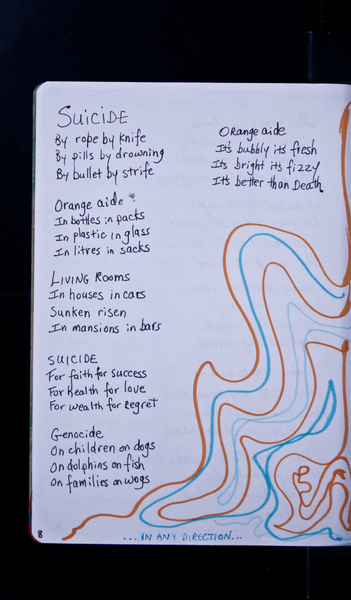 SUICIDE
By rope by knife
By pills by drowning
By bullet by strife
Orange aide
In bottles in packs
In plastic in glass
In litres in sacks
LIVING ROOMS
In houses in cars
Sunken risen
In mansions in bars
SUICIDE
For faith for success
For health for love
For wealth for regret
Genocide
On children on dogs
On dolphins on fish
On families on wogs
Orange aide
It's bubbly it's fresh
It's bright it's fizzy
It's better than Death
8
...IN ANY DIRECTION...